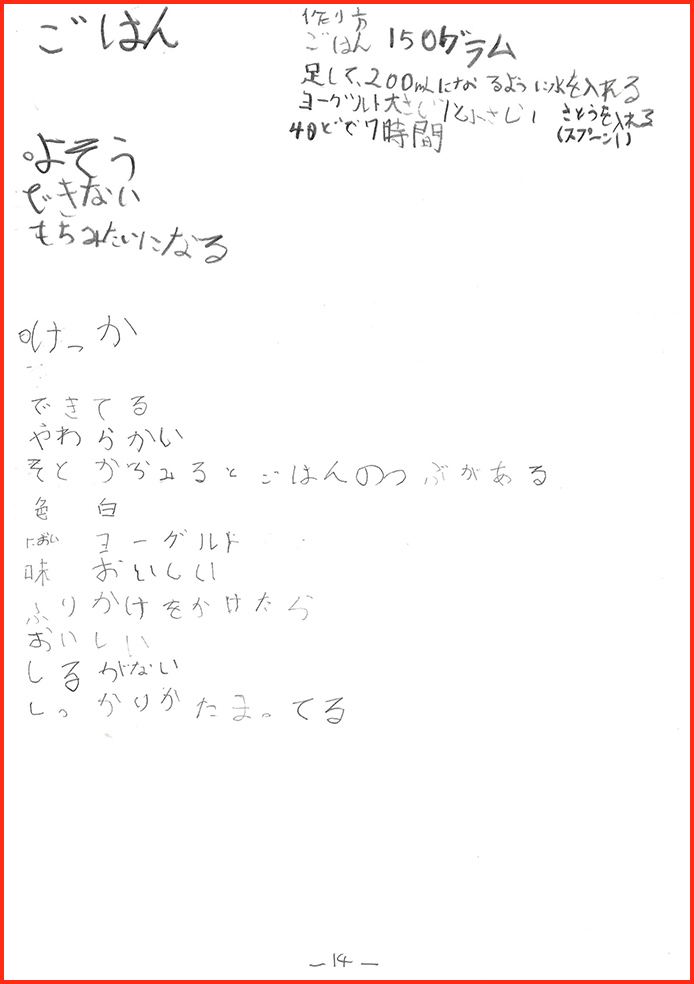 ごはん
作り方
ごはん 150グラム
足して、200mLになるように水を入れる
ヨーグルト大さじ1と小さじ1 さとうを入れる
(スプーン1)
40どで7時間
○よそう
できない
もちみたいになる
○けっか
できてる
やわらかい
そとからみるとごはんのつぶがある
色 白
におい ヨーグルト
味 おいしい
ふりかけをかけたら
おいしい
しるがない
しっかりかたまってる
-14-